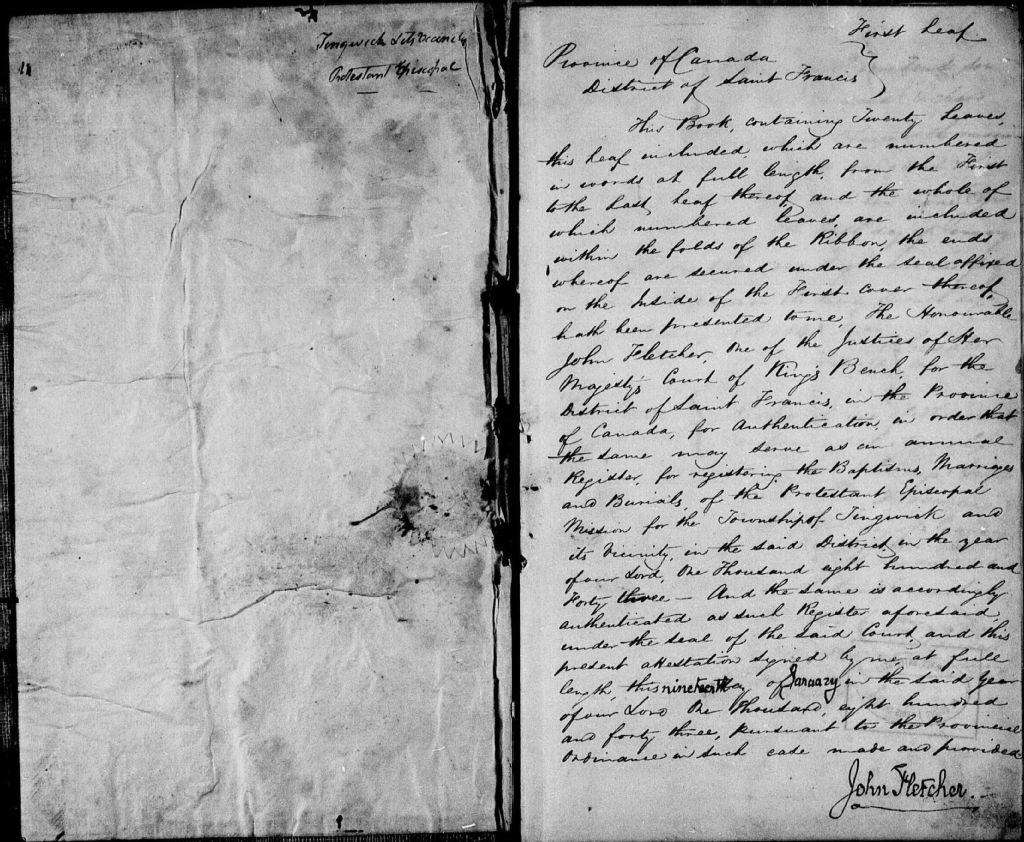 Tingwick & its Vicinity
Protestant Episcopal
First Leaf
Province of Canada
District of Saint Francis
This Book, containing Twenty Leaves,
this Leaf included, which are numbered
in words at full length, from the First
to the Last Leaf thereof, and the whole of
which numbered leaves, are included
within the folds of the Ribbon, the ends
whereof are secured under the Seal affixed
on the Inside of the First Cover thereof,
hath been presented to me, The Honourable
John Fletcher, One of the Justices of Her
Majesty's Court of King's Bench, for the
District of Saint Francis, in the Province
of Canada, for Authentication, in order that
the same may serve as an annual
Register, for registering the Baptisms, Marriages
and Burials, of the Protestant Episcopal
Mission for the Township of Tingwick and
its Vicinity, in the said District, in the year
of our Lord, One Thousand eight hundred and
Forty three — And the same is accordingly
authenticated as such Register aforesaid,
under the Seal of the said Court, and this
present attestation signed by me, at full
length, this nineteenth day of January, in the said Year
of our Lord One Thousand, eight hundred
and forty three, pursuant to the Provincial
Ordinance in such case made and provided
John Fletcher.